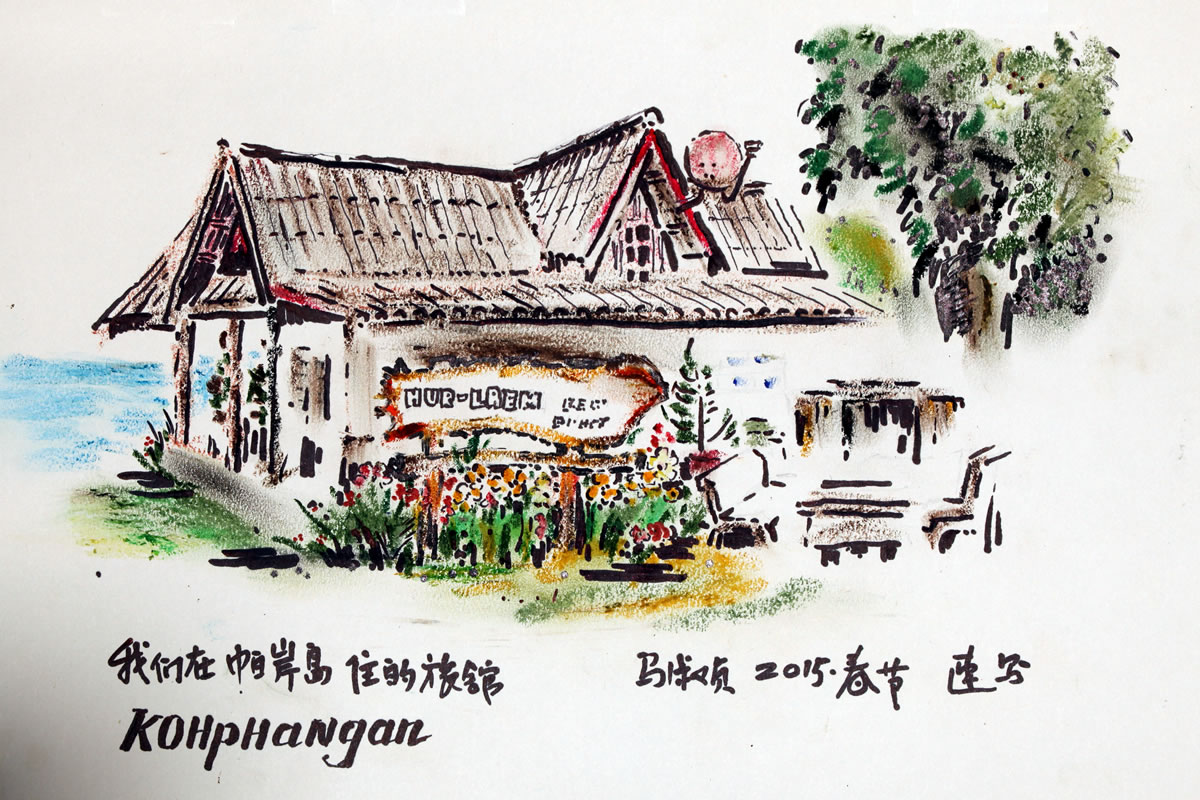 HUA-LAEM
我们在帕岸岛住的旅馆 马淑贞 2015.春节 速写
KOHpHaNgan